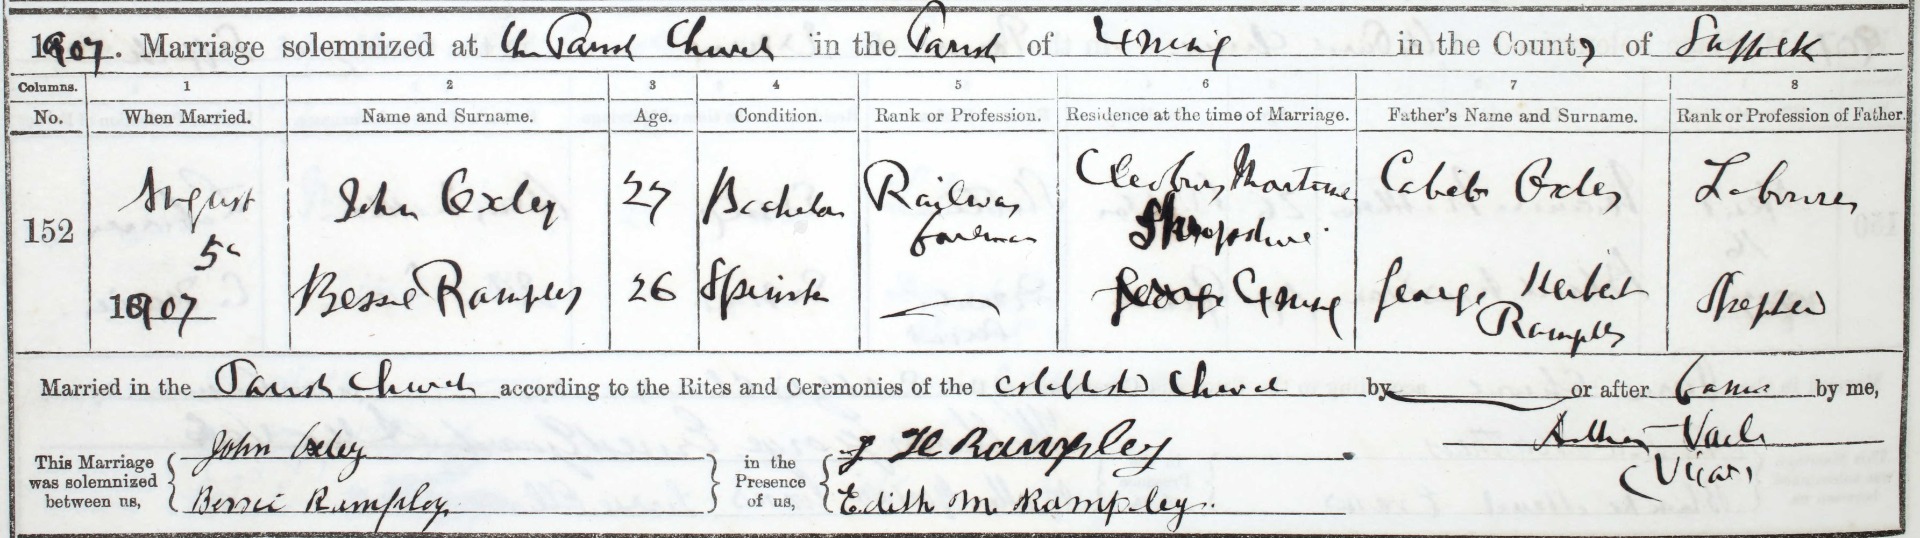 1907. Marriage solemnized at the Parish Church in the Parish of Exning in the County of Suffolk
Columns. 1 2 3 4 5 6 7 8
No. When Married. Name and Surname. Age. Condition. Rank or Profession. Residence at the time of Marriage. Father's Name and Surname. Rank or Profession of Father.
152 August 5th 1907 John Oxley 27 Bachelor Railway foreman Cleobury Mortimer Shropshire Caleb Oxley Labourer
Bessie Rampley 26 Spinster — Exning George Herbert Rampley
Married in the Parish Church according to the Rites and Ceremonies of the Established Church by or after Banns by me,
John Oxley
This Marriage was solemnized between us,
Bessie Rampley
in the Presence of us,
G H Rampley
Edith M Rampley.
Arthur
Vicar